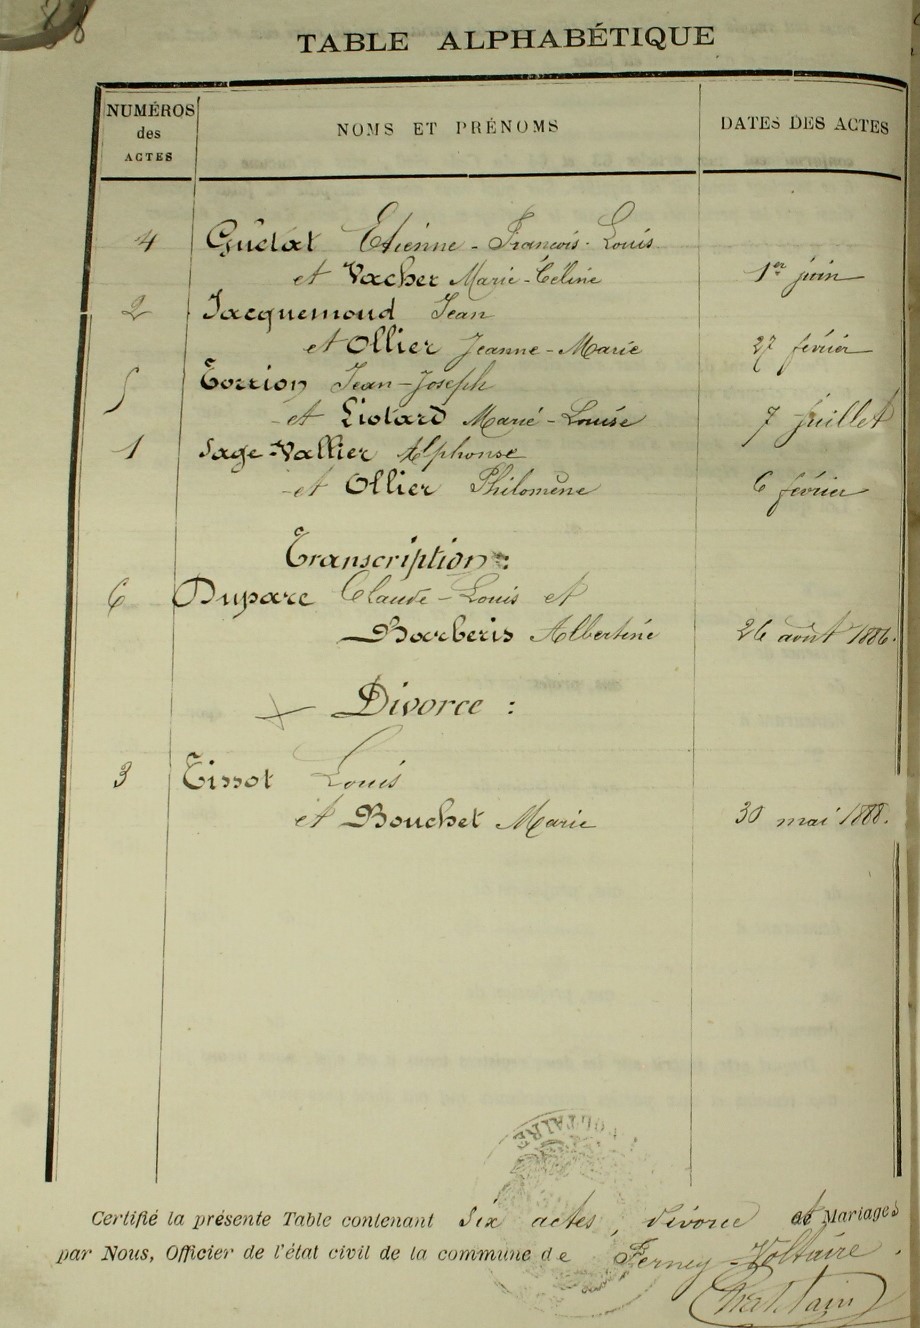 TABLE ALPHABÉTIQUE
NUMÉROS des ACTES
NOMS ET PRÉNOMS
DATES DES ACTES
4 Guétat Etienne - François - Louis
et Vacher Marie - Céline 1er juin
2 Jacquemoud Jean
et Ollier Jeanne - Marie 27 février
5 Torrion Jean - Joseph
et Liotard Marie - Louise 7 juillet
1 Sage-Vallier Alphonse
et Ollier Philomène 6 février
Transcription :
6 Duparc Claude - Louis et
Barberis Albertine 26 août 1886.
Divorce :
3 Tissot Louis
et Bouchet Marie 30 mai 1888.
VOLTAIRE
Certifié la présente Table contenant six actes, divorce et Mariages
par Nous, Officier de l'état civil de la commune de Ferney - Voltaire.